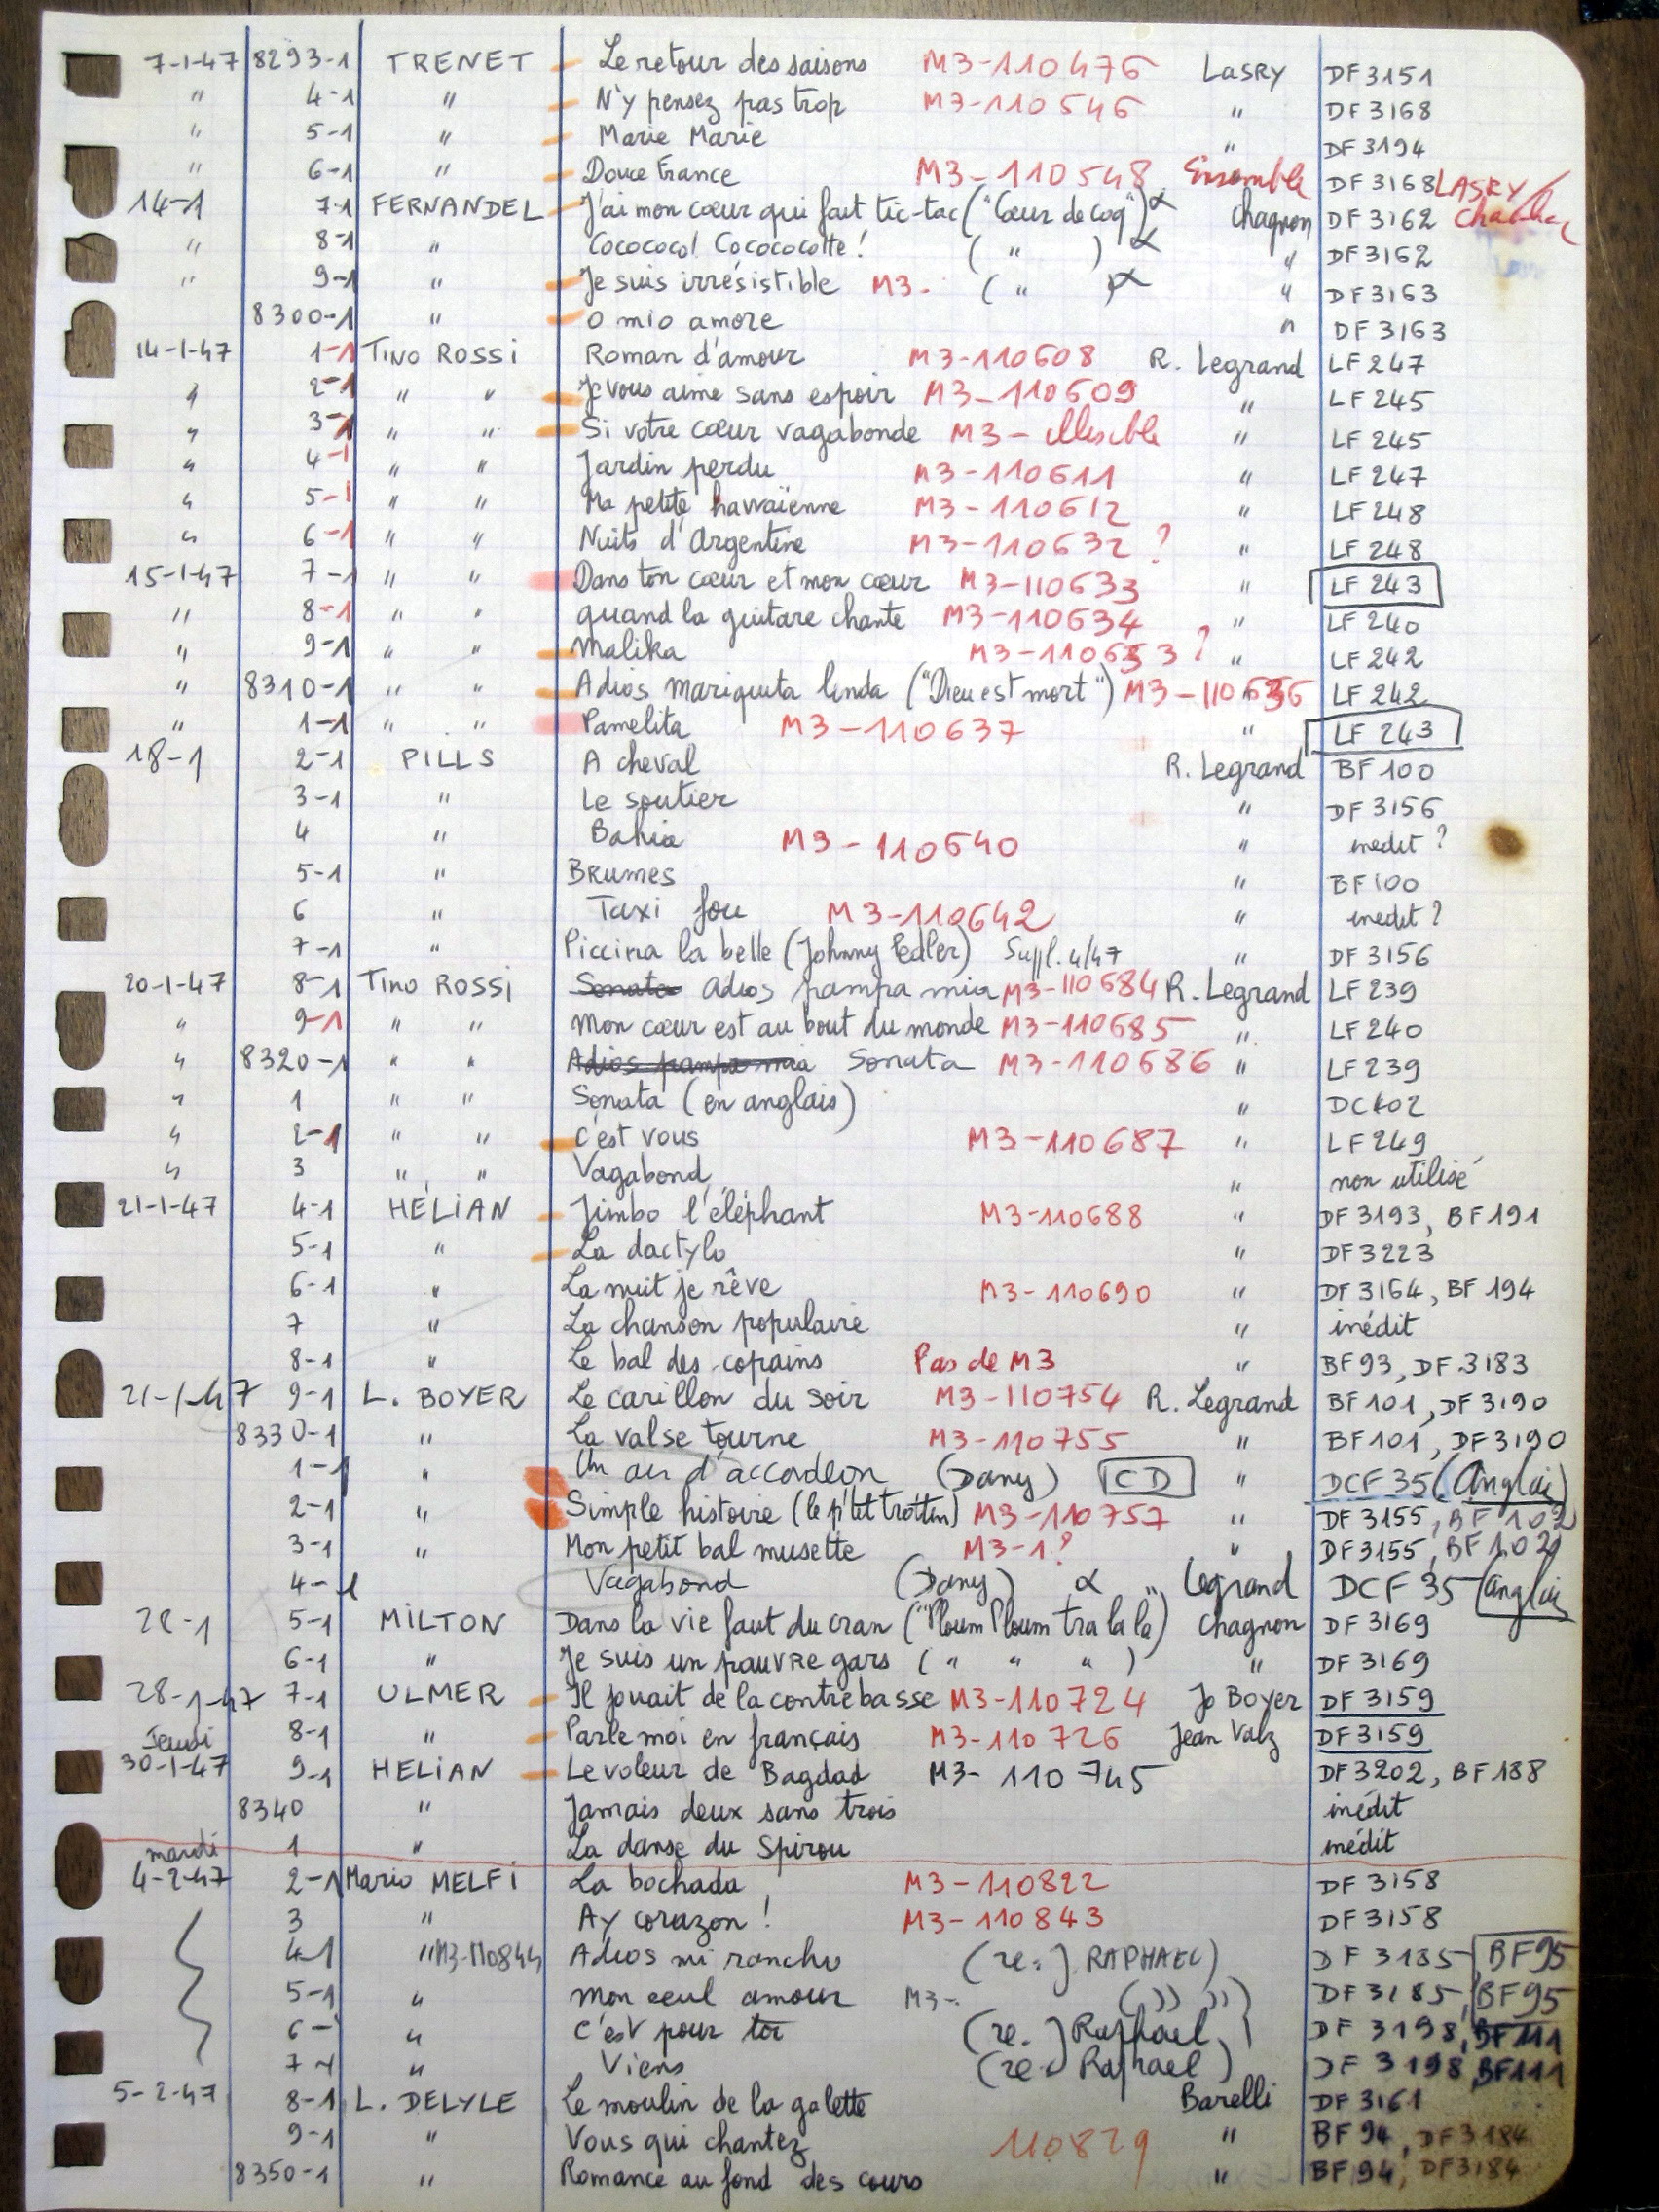 7-1-47 8293-1 TRENET Le retour des saisons M3-110476 LASRY DF 3151
" 4-1 " N'y pensez pas trop M3-110546 " DF 3168
" 5-1 " Marie Marie " DF 3194
" 6-1 " Douce France M3-110548 Ensemble DF 3168 LASRY/
14-1 7-1 FERNANDEL J'ai mon cœur qui fait tic-tac ("Cœur de coq") α Chagnon DF 3162
" 8-1 " Cocococo! Cocococotte! ( " ) α " DF 3162
" 9-1 " Je suis irrésistible M3- ( " ) α " DF 3163
8300-1 " O mio amore " DF 3163
14-1-47 1-1 TINO ROSSI Roman d'amour M3-110608 R. Legrand LF 247
" 2-1 " " Je vous aime sans espoir M3-110609 " LF 245
" 3-1 " " Si votre cœur vagabonde M3- illisible " LF 245
" 4-1 " " Jardin perdu M3-110611 " LF 247
" 5-1 " " Ma petite hawaïenne M3-110612 " LF 248
" 6-1 " " Nuits d'Argentine M3-110632 ? " LF 248
15-1-47 7-1 " " Dans ton cœur et mon cœur M3-110633 " LF 243
" 8-1 " " quand la guitare chante M3-110634 " LF 240
" 9-1 " " Malika ? " LF 242
" 8310-1 " " Adios mariquita linda ("Dieu est mort") M3-110636 " LF 242
" 1-1 " " Pamelita M3-110637 " LF 243
18-1 2-1 PILLS A cheval R. Legrand BF 100
3-1 " Le soutier " DF 3156
4 " Bahia M3-110640 " inédit ?
5-1 " Brumes " BF 100
6 " Taxi fou M3-110642 " inédit ?
7-1 " Piccina la belle (Johnny Pedler) Suppl. 4/47 " DF 3156
20-1-47 8-1 Tino ROSSI Sonata adios pampa mia M3-110684 R. Legrand LF 239
" 9-1 " " Mon cœur est au bout du monde M3-110685 " LF 240
" 8320-1 " " Adios pampa mia Sonata M3-110686 " LF 239
" 1 " " Sonata (en anglais) " DC 402
" 2-1 " " C'est vous M3-110687 " LF 249
" 3 " " Vagabond " non utilisé
21-1-47 4-1 HÉLIAN Jimbo l'éléphant M3-110688 " DF 3193, BF 191
5-1 " La dactylo " DF 3223
6-1 " La nuit je rêve M3-110690 " DF 3164, BF 194
7 " La chanson populaire " inédit
8-1 " Le bal des copains Pas de M3 " BF 93, DF 3183
21-1-47 9-1 L. BOYER Le carillon du soir M3-110754 R. Legrand BF 101, DF 3190
8330-1 " La valse tourne M3-110755 " BF 101, DF 3190
1-1 " Un air d'accordéon (Dany) CD " DCF 35 (Anglais)
2-1 " Simple histoire (le p'tit trottin) M3-110757 " DF 3155, BF 102
3-1 " Mon petit bal musette M3-1? " DF 3155, BF 102
4-1 Vagabond (Dany) α " Legrand DCF 35 (anglais
28-1 5-1 MILTON Dans la vie faut du cran ("Ploum Ploum tra la la") Chagnon DF 3169
6-1 " Je suis un pauvre gars ( " " " ) " DF 3169
28-1-47 7-1 ULMER Il jouait de la contrebasse M3-110724 Jo Boyer DF 3159
8-1 " Parle moi en français M3-110726 Jean Valz DF 3159
Jeudi
30-1-47 9-1 HELIAN Le voleur de Bagdad M3-110745 DF 3202, BF 188
8340 " Jamais deux sans trois inédit
1 " La danse du Spirou inédit
mardi
4-2-47 2-1 Mario MELFI La bochada M3-110822 DF 3158
3 " Ay corazon ! M3-110843 DF 3158
4-1 " M3-110844 Adios mi rancho (re. J. RAPHAEL) DF 3185 BF95
5-1 " mon seul amour M3-. ( )) )) ) DF 3185, BF95
6- " C'est pour toi (re. J Raphael) DF 3198, BF111
7-1 " Viens (re. J Raphael) DF 3198, BF111
5-2-47 8-1 L. DELYLE Le moulin de la galette Barelli DF 3161
9-1 " Vous qui chantez 110829 " BF 94, DF 3184
8350-1 " Romance au fond des cours " BF 94, DF 3184